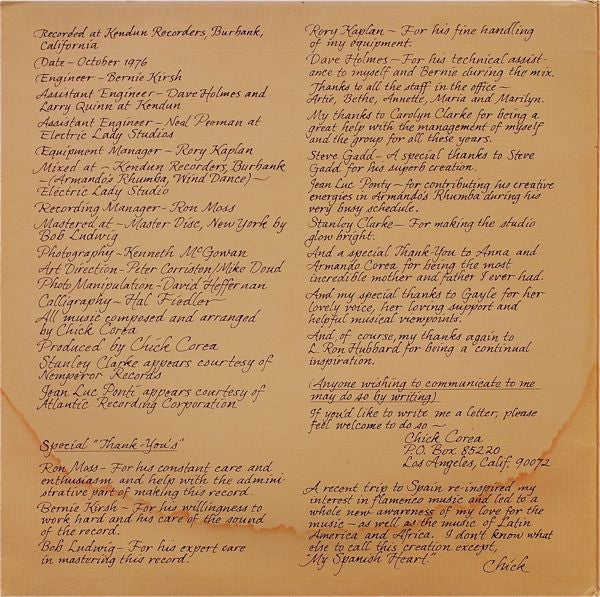 Recorded at Kendun Recorders, Burbank,
California
Date ~ October 1976
Engineer - Bernie Kirsh
Assistant Engineer - Dave Holmes and
Larry Quinn at Kendun
Assistant Engineer ~ Neal Peoman at
Electric Lady Studios
Equipment Manager ~ Rory Kaplan
Mixed at ~ Kendun Recorders, Burbank
~ (Armando's Rhumba, Wind Dance) ~
Electric Lady Studio
Recording Manager - Ron Moss
Mastered at ~ Master Disc, New York by
Bob Ludwig
Photography ~ Kenneth McGowan
Art Direction - Peter Corriston/Miko Doud
Photo Manipulation - David Heffernan
Calligraphy ~ Hal Fiedler
All music composed and arranged
by Chick Corea
Produced by Chick Corea
Stanley Clarke appears courtesy of
Nemperor Records
Jean Luc Ponti appears courtesy of
Atlantic Recording Corporation
Special "Thank-You's"
Ron Moss - For his constant care and
enthusiasm and help with the admini-
strative part of making this record.
Bernie Kirsh - For his willingness to
work hard and his care of the sound
of the record.
Bob Ludwig - For his expert care
in mastering this record.
Rory Kaplan ~ For his fine handling
of my equipment.
Dave Holmes - For his technical assist-
ance to myself and Bernie during the mix.
Thanks to all the staff in the office ~
Artie, Bethe, Annette, Maria and Marilyn.
My thanks to Carolyn Clarke for being a
great help with the management of myself
and the group for all these years.
Steve Gadd - A special thanks to Steve
Gadd for his superb creation.
Jean Luc Ponty ~ for contributing his creative
energies in Armando's Rhumba during his
very busy schedule.
Stanley Clarke - For making the studio
glow bright.
And a special Thank-You to Anna and
Armando Corea for being the most
incredible mother and father I ever had.
And my special thanks to Gayle for her
lovely voice, her loving support and
helpful musical viewpoints.
And, of course, my thanks again to
L. Ron Hubbard for being a continual
inspiration.
(Anyone wishing to communicate to me
may do so by writing)
If you'd like to write me a letter, please
feel welcome to do so ~
Chick Corea
P.O. Box 85220
Los Angeles, Calif. 90072
A recent trip to Spain re-inspired my
interest in flamenco music and led to a
whole new awareness of my love for the
music - as well as the music of Latin
America and Africa. I don't know what
else to call this creation except,
"My Spanish Heart."
Chick